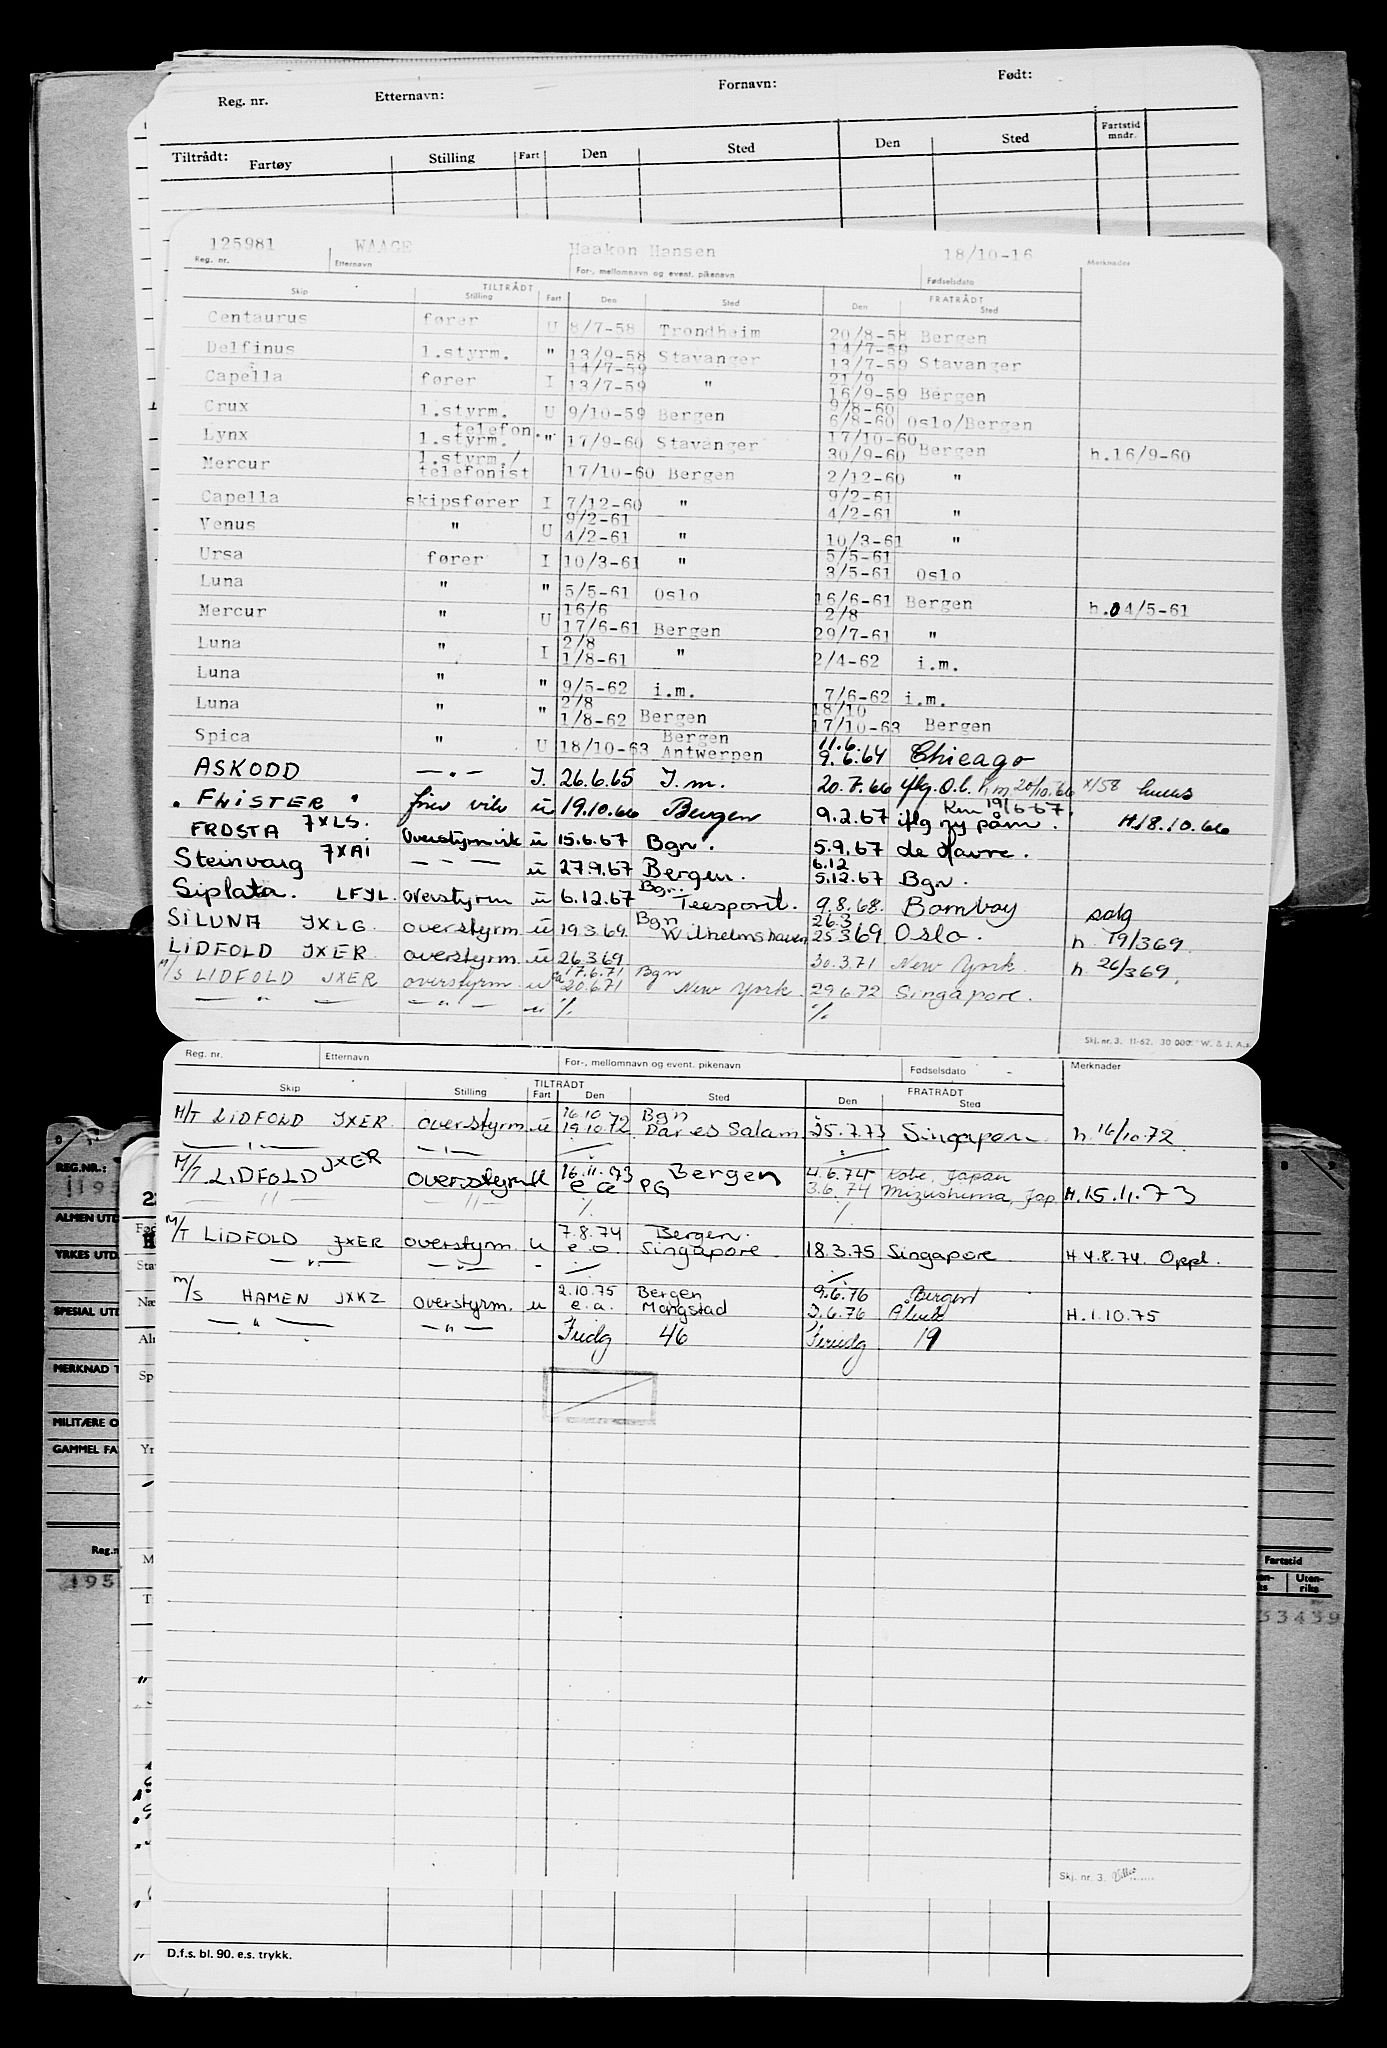 Reg. nr. Etternavn: Fornavn: Født:
Tiltrådt: Fartøy Stilling Fart Den Sted Den Sted Fartstid mndr.
125981 WAAGE Haakon Hansen 18/10-16
Reg. nr. Etternavn For-, mellomnavn og event. pikenavn Fødselsdato Merknader
TILTRÅDT FRATRÅDT
Skip Stilling Fart Den Sted Den Sted
Centaurus fører U 8/7-58 Trondheim 20/8-58 Bergen
Delfinus 1.styrm. " 13/9-58 Stavanger 14/7-59 13/7-59 Stavanger
Capella fører I 14/7-59 13/7-59 " 21/9 16/9-59 Bergen
Crux 1.styrm. U 9/10-59 Bergen 9/8-60 6/8-60 Oslo/Bergen
Lynx telefon. 1.styrm. " 17/9-60 Stavanger 17/10-60 30/9-60 Bergen h.16/9-60
Mercur 1.styrm./ telefonist 17/10-60 Bergen 2/12-60 "
Capella skipsfører I 7/12-60 " 9/2-61 4/2-61 "
Venus " U 9/2-61 4/2-61 " 10/3-61 "
Ursa fører I 10/3-61 " 5/5-61 3/5-61 Oslo
Luna " " 5/5-61 Oslo 16/6-61 Bergen h.04/5-61
Mercur " U 16/6 17/6-61 Bergen 2/8 29/7-61 "
Luna " I 2/8 1/8-61 " 2/4-62 i.m.
Luna " " 9/5-62 i.m. 7/6-62 i.m.
Luna " " 2/8 1/8-62 Bergen 18/10 17/10-63 Bergen
Spica " U 18/10-63 Bergen Antwerpen 11.6. 9.6.64 Chicago
ASKODD — " — I. 26.6.65 I.m. 20.7.66 h.m. 20/10.66 x/58
" FHISTER " fører vik u 19.10.66 Bergen 9.2.67 ny påm. 19/6 67. H18.10.66
FROSTA JXLS. Overstyrm vik u 15.6.67 Bgn. 5.9.67 de Havre.
Steinvarg JXAI — " — u 27.9.67 Bergen. 6.12 5.12.67 Bgn.
Siplata. LFJL. overstyrm u 6.12.67 Bgn. Teesport. 9.8.68. Bombay salg
SILUNA JXLG. overstyrm u 19369. Bgn Wilhelmshaven 26.3 25369 Oslo. h. 19/369.
LIDFOLD JXER overstyrm u 26369 30.3.71 New York h. 26/369.
M/S LIDFOLD JXER overstyrm u 17.6.71 ea 20.671 Bgn New York. 29.6.72 Singapore.
— " — — " — u % %
Skj. nr. 3. 11-62. 30 000. W. & J. A.s
Reg. nr. Etternavn For-, mellomnavn og event. pikenavn Fødselsdato Merknader
TILTRÅDT FRATRÅDT
Skip Stilling Fart Den Sted Den Sted
M/T LIDFOLD JXER overstyrm u 16.10 19.10.72 Bgn Dar es Salam 25.7.73 Singapore h. 16/10.72
— " — — " —
M/T LIDFOLD JXER Overstyrm U 16.11.73 e a Bergen PG 4.6.74 3.6.74 Kobe, Japan Mizushima, Jap. H.15.11.73
— " — — " — % %
M/T LIDFOLD JXER overstyrm. u 7.8.74 e.a. Bergen. Singapore 18.3.75 Singapore H 4.8.74. Oppl.
— " — — " — -
M/S HAMEN JXKZ overstyrm. u 2.10.75 e.a. Bergen Mongstad 9.6.76 7.6.76 Bergen H.1.10.75
— " — — " — Fridg 46 Feriedg 19
Skj. nr. 3.
D.f.s. bl. 90. e.s. trykk.
REG.NR.:
ALMEN UTD
YRKES UTD.
SPESIAL UTD
MERKNAD T
MILITÆRE O
GAMMEL FA
Reg.n
195
Fartstid
Uten-riks
33439